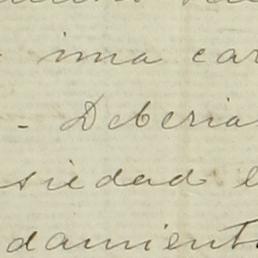 ima car
- Deberia
siedad e
damient